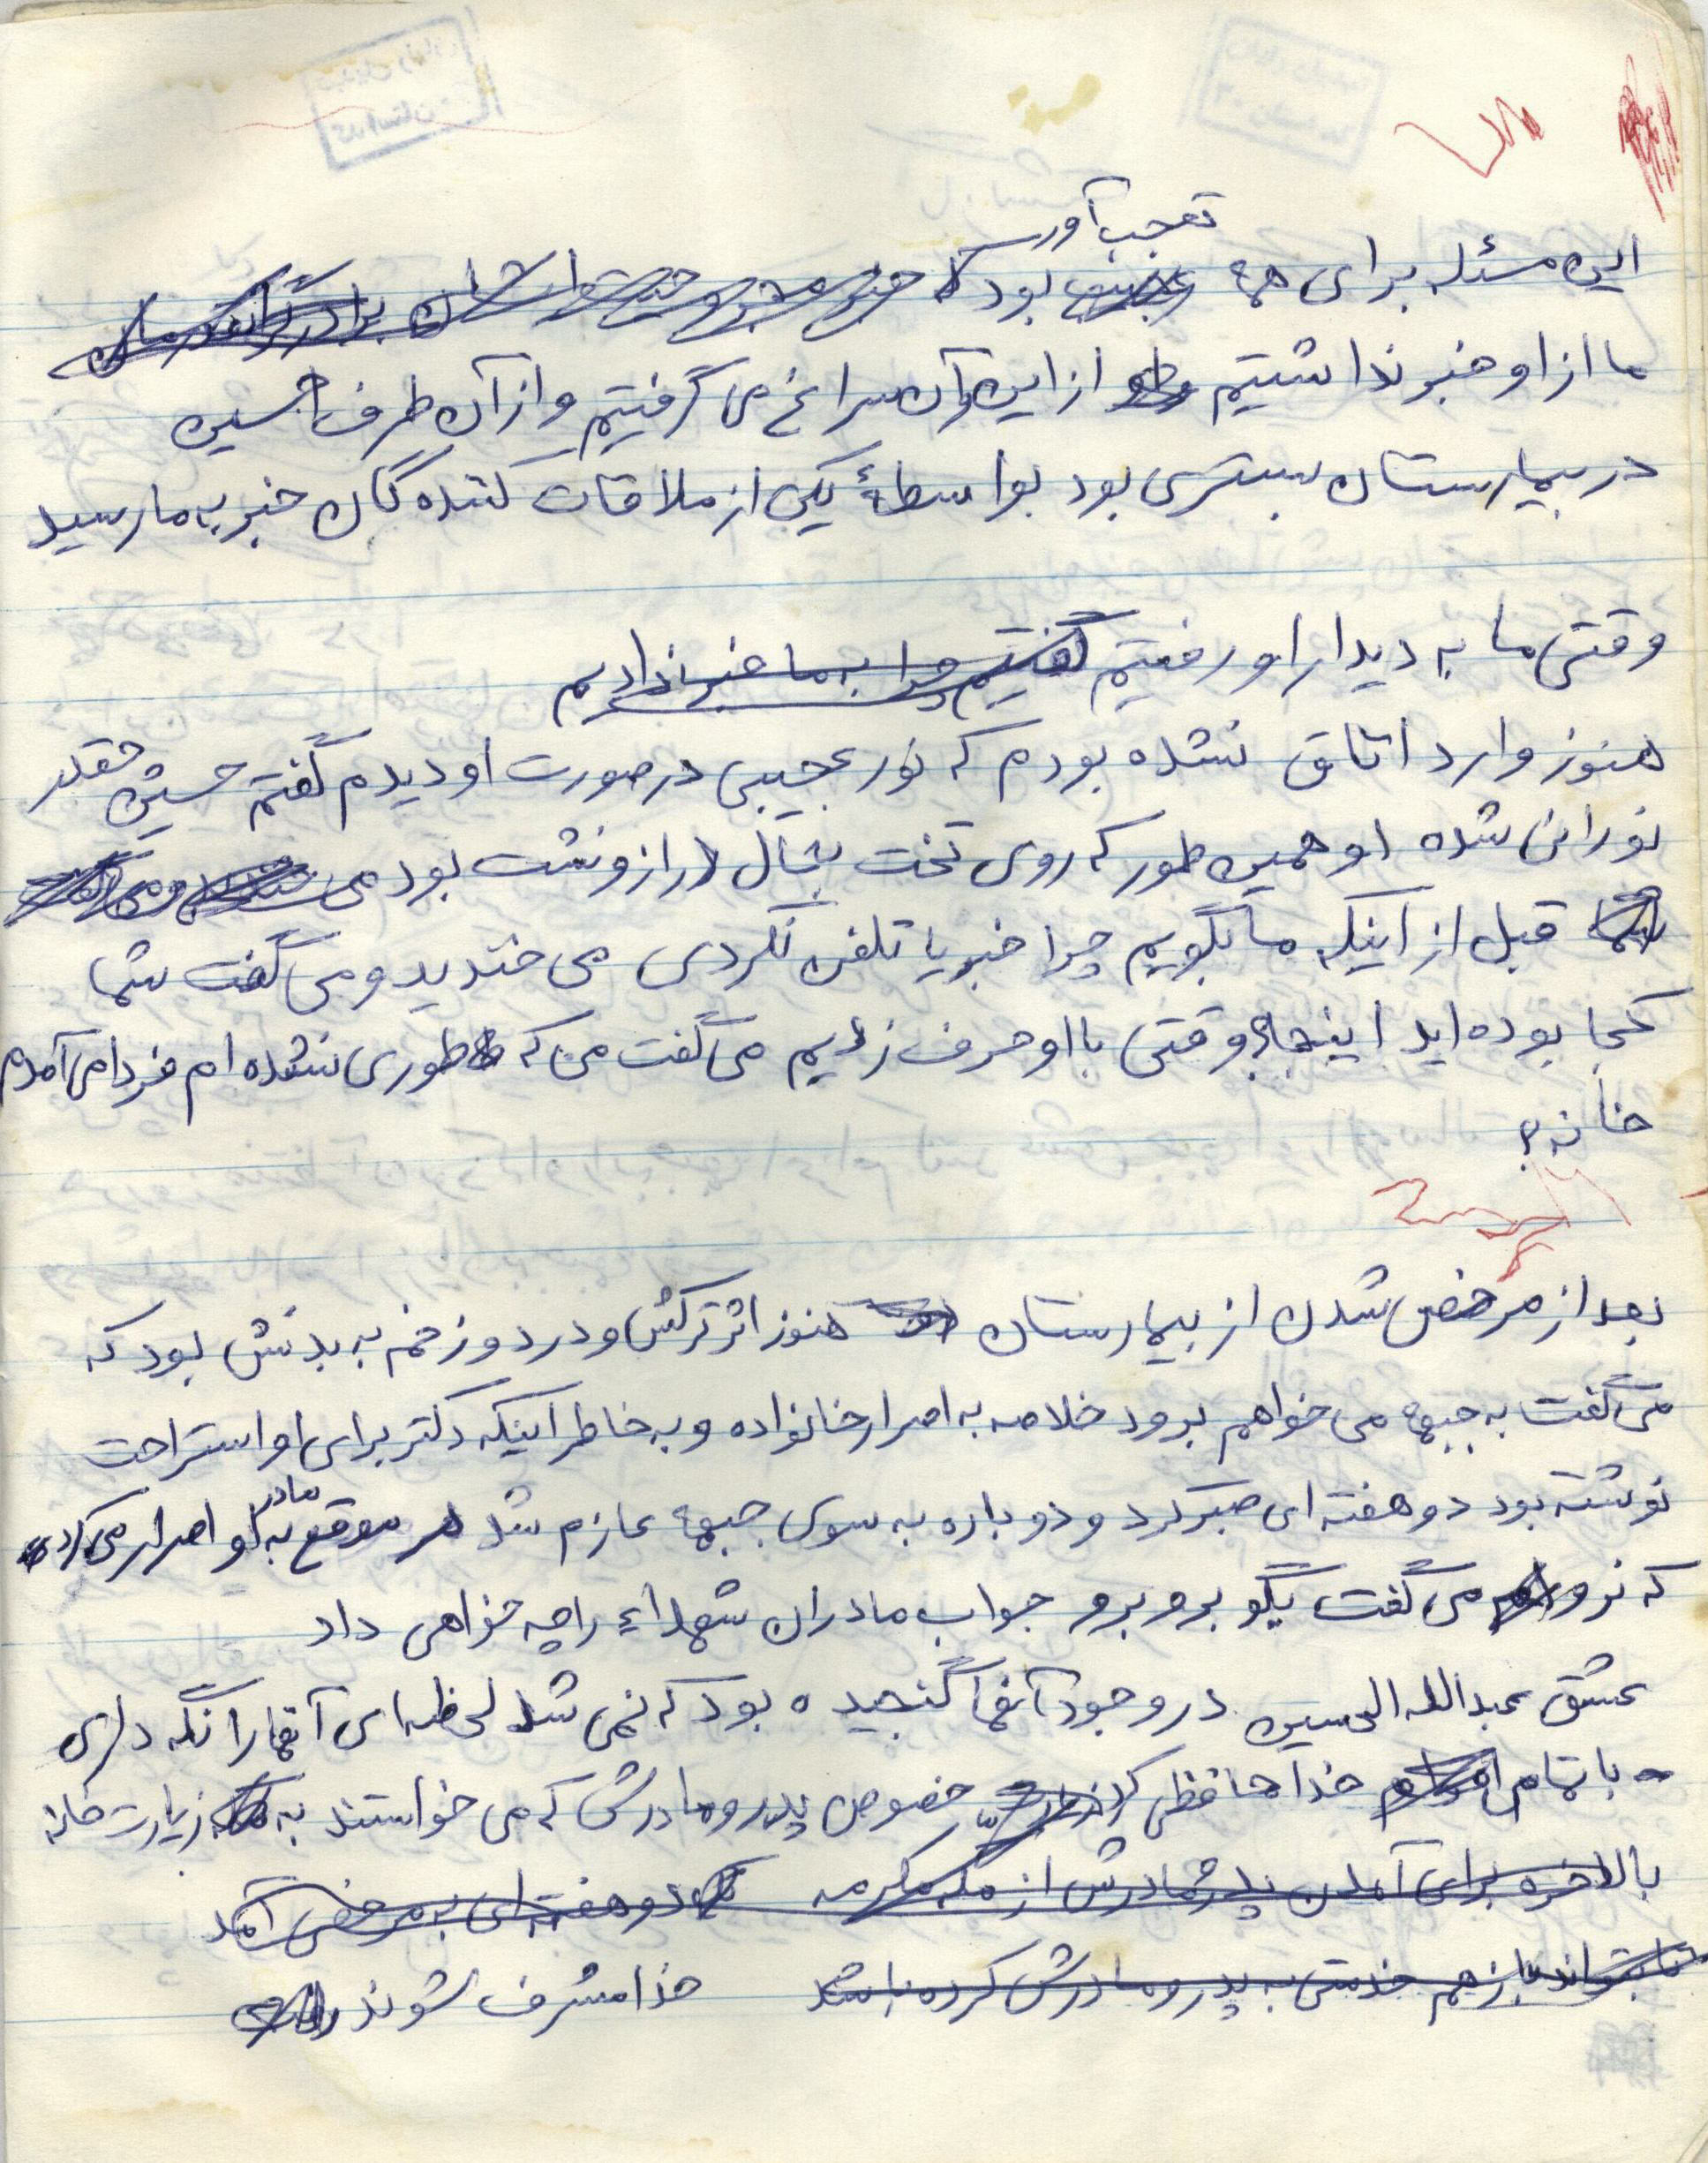 تعجب آور
این مسئله برای همه عجیب بود که
ما از او خبر نداشتیم از این و آن سراغ می گرفتیم و از آن طرف حسین
در بیمارستان بستری بود بواسطهٔ یکی از ملاقات کننده گان خبر به ما رسید
وقتی ما به دیدار او رفتیم گفتیم چرا به ما خبر ندادیم
هنوز وارد اتاق نشده بودم که نور عجیبی در صورت او دیدم گفتم حسین چقدر
نورانی شده او همین طور که روی تخت بشال دراز ونشت بود می
قبل از اینکه ما بگویم چرا خبر یا تلفن نکردی می خندید و می گفت شما
کجا بوده اید اینجا وقتی با او حرف زدیم می گفت من که طوری نشده ام فردا می آمدم
خانه؟
بعد از مرخص شدن از بیمارستان هنوز اثر ترکش و درد و زخم به بدنش بود که
می گفت به جبهه می خواهم برود خلاصه به اصرار خانواده و به خاطر اینکه دکتر برای او استراحت
نوشته بود دو هفته ای صبر کرد و دوباره به سوی جبهه عازم شد هر موقع مادر به او اصرار می کرد
که نرو می گفت بگو برو برو جواب مادران شهداء را چه خواهی داد
عشق عبدالله الحسین در وجود آنها گنجیده بود که نمی شد لحظه ای آنها را نگه داری
با تمام خدا حافظی کرد خصوص پدر و مادرش که می خواستند به زیارت خانه
بالاخره برای آمدن پدر و مادرش از مکه مکرمه دو هفته ای به مرخصی آمد
تا بتواند باز هم خدمتی به پدر و مادرش کرده باشد خدا مشرف شوند